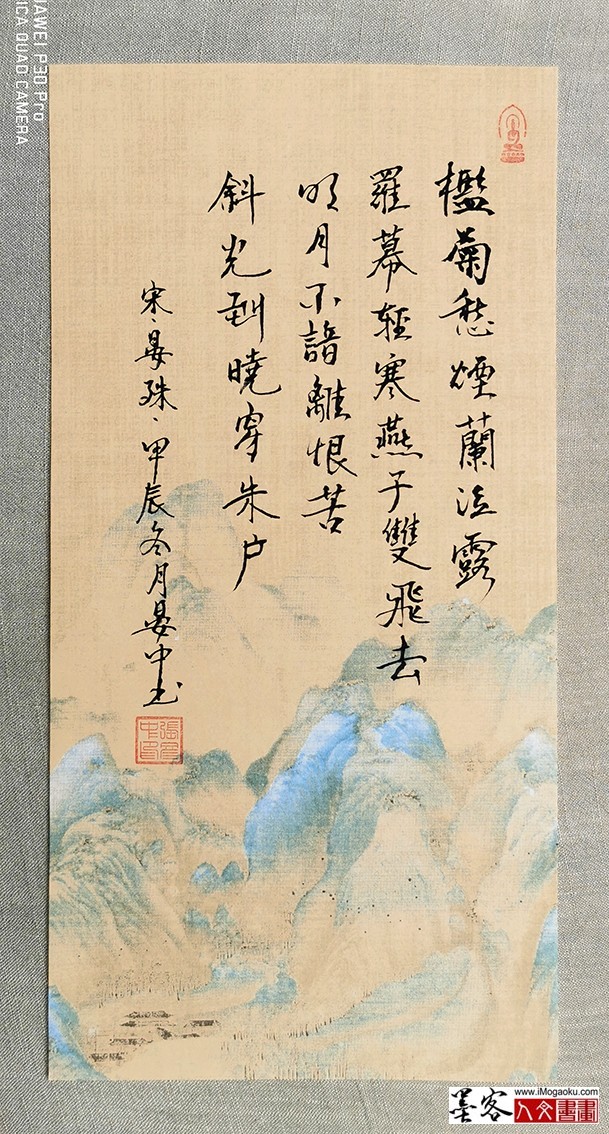 檻菊愁煙蘭泣露
羅幕輕寒燕子雙飛去
明月不諳離恨苦
斜光到曉穿朱户
宋·晏殊·甲辰冬月晏中书
HUAWEI P30 Pro
LEICA QUAD CAMERA
墨客
www.iMogaoku.com
人文書畫